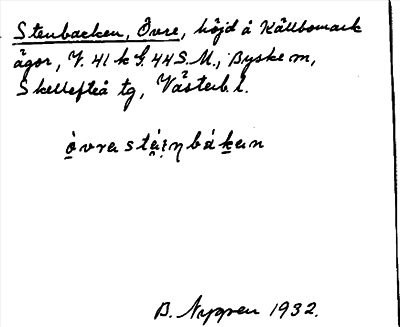 Stenbacken, Övre, höjd å Källbomark
ägor, V. 41 k G. 44 S.M., Byske sn,
Skellefteå tg, Västerb. l.
òvra stáinbákan
B. Nygren 1932.